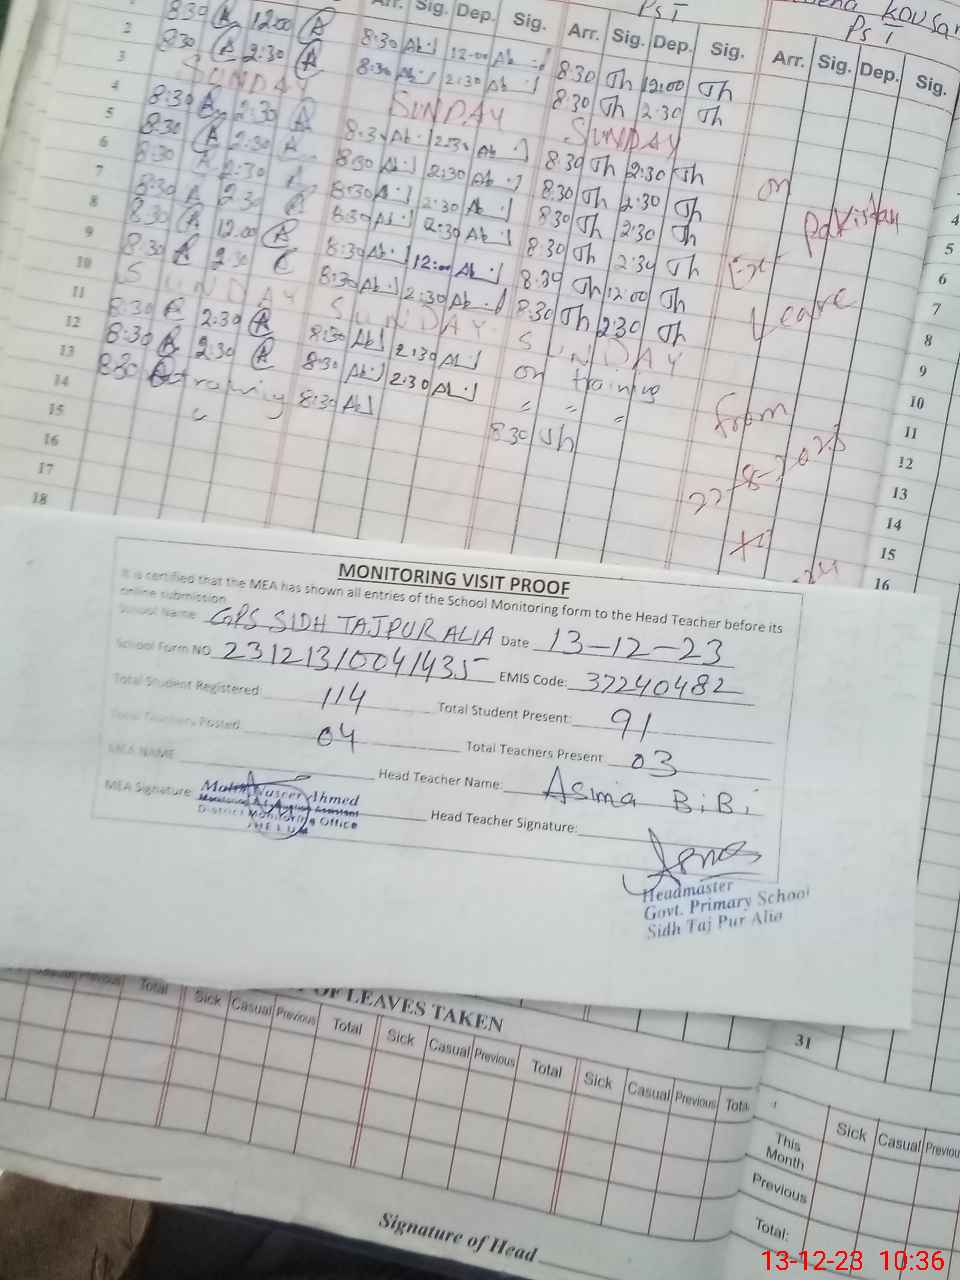 PST
KOUSar
PST
Arr. Sig. Dep. Sig. Arr. Sig. Dep. Sig. Arr. Sig. Dep. Sig.
2 8:30 A 12:00 A 8:30 Ab 12:00 Ab 8:30 Th 12:00 Th
3 8:30 A 2:30 A 8:30 Ab 2:30 Ab 8:30 Th 2:30 Th
4 SUNDAY SUNDAY SUNDAY
5 8:30 A 2:30 A 8:30 Ab 2:30 Ab 8:30 Th 2:30 Th
6 8:30 A 2:30 A 8:30 Ab 2:30 Ab 8:30 Th 2:30 Th
7 8:30 A 2:30 A 8:30 Ab 2:30 Ab 8:30 Th 2:30 Th
8 8:30 A 2:30 8:30 Ab 2:30 Ab 8:30 Th 2:30 Th
9 8:30 A 12:00 A 8:30 Ab 12:00 Ab 8:30 Th 12:00 Th
10 8:30 2:30 8:30 Ab 2:30 Ab 8:30 Th 2:30 Th
11 SUNDAY SUNDAY SUNDAY
12 8:30 2:30 A 8:30 Ab 2:30 Ab on training
13 8:30 A 2:30 A 8:30 Ab 2:30 Ab " " "
14 8:30 training 8:30 Ab 8:30 Th
15
16
17
18
on
Pakistan
care
from
22-8-2023
to
4
5
6
7
8
9
10
11
12
13
14
15
16
MONITORING VISIT PROOF
It is certified that the MEA has shown all entries of the School Monitoring form to the Head Teacher before its
online submission
School Name GPS SIDH TAJPUR ALIA Date 13-12-23
School Form NO 231213/0041435 EMIS Code: 37240482
Total Student Registered: 114 Total Student Present: 91
Total Teachers Posted: 04 Total Teachers Present 03
MEA NAME Head Teacher Name: Asima BiBi
MEA Signature: Head Teacher Signature:
Ahmed
District Monitoring Office
JHELUM
Headmaster
Govt. Primary School
Sidh Taj Pur Alia
31
OF LEAVES TAKEN
Casual Previous Total Sick Casual Previous Total Sick Casual Previous Total Sick Casual Previous Total
Sick Casual Previous
This Month
Previous
Total:
Signature of Head
13-12-23 10:36